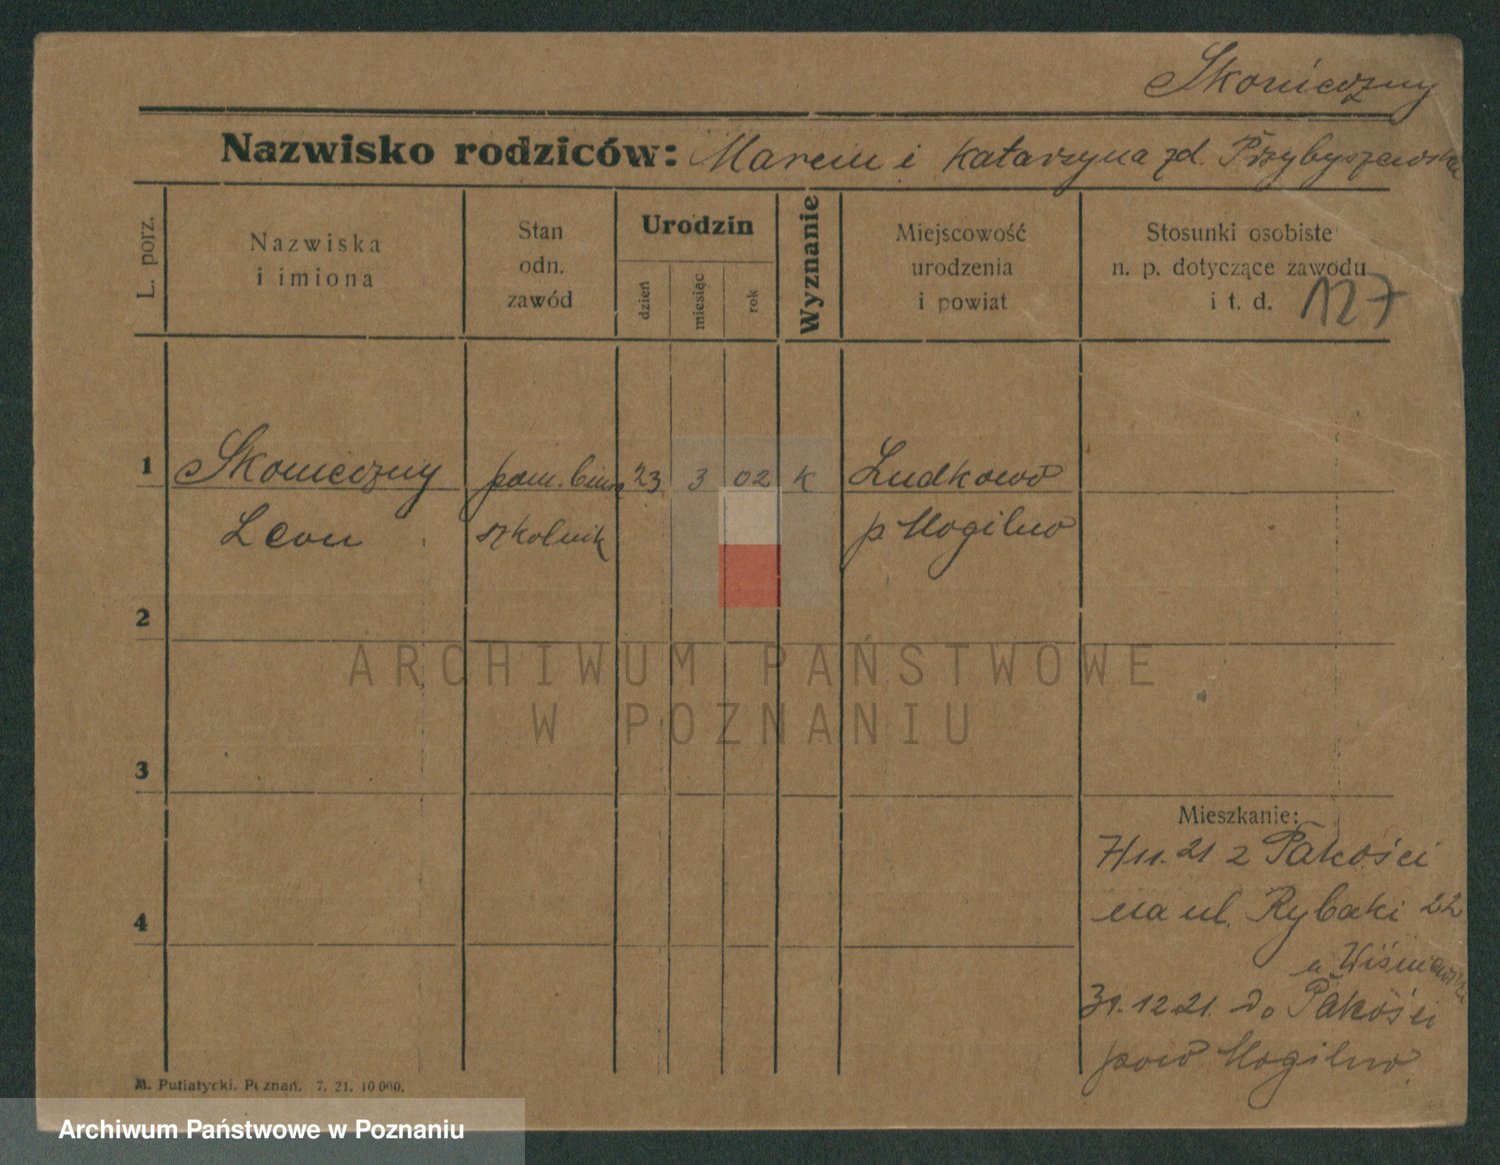 Skonieczny
Nazwisko rodziców: Marcin i Katarzyna zd. Przybyszewska
L. porz.
Nazwiska
i imiona
Stan
odn.
zawód
Urodzin
dzień
miesiąc
rok
Wyznanie
Miejscowość
urodzenia
i powiat
Stosunki osobiste
n. p. dotyczące zawodu
i t. d. 127
1 Skonieczny pom. biur 23 3 02 k Ludkowo
Leon szkolnik p Mogilno
2
ARCHIWUM PAŃSTWOWE
W POZNANIU
3
Mieszkanie:
7/11. 21 z Pakości
4
na ul. Rybaki 22
u Wiśniewska
31.12 21. do Pakości
pow Mogilno
M. Putiatycki. Poznań. 7. 21. 10 000.
Archiwum Państwowe w Poznaniu